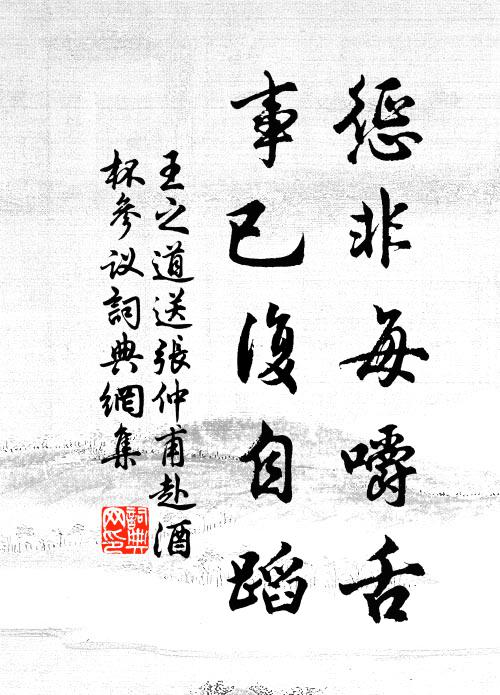 愆非每嚼舌
事已復自蹈
王之道送張仲甫赴酒
杯參议詞典網集
詞典网印